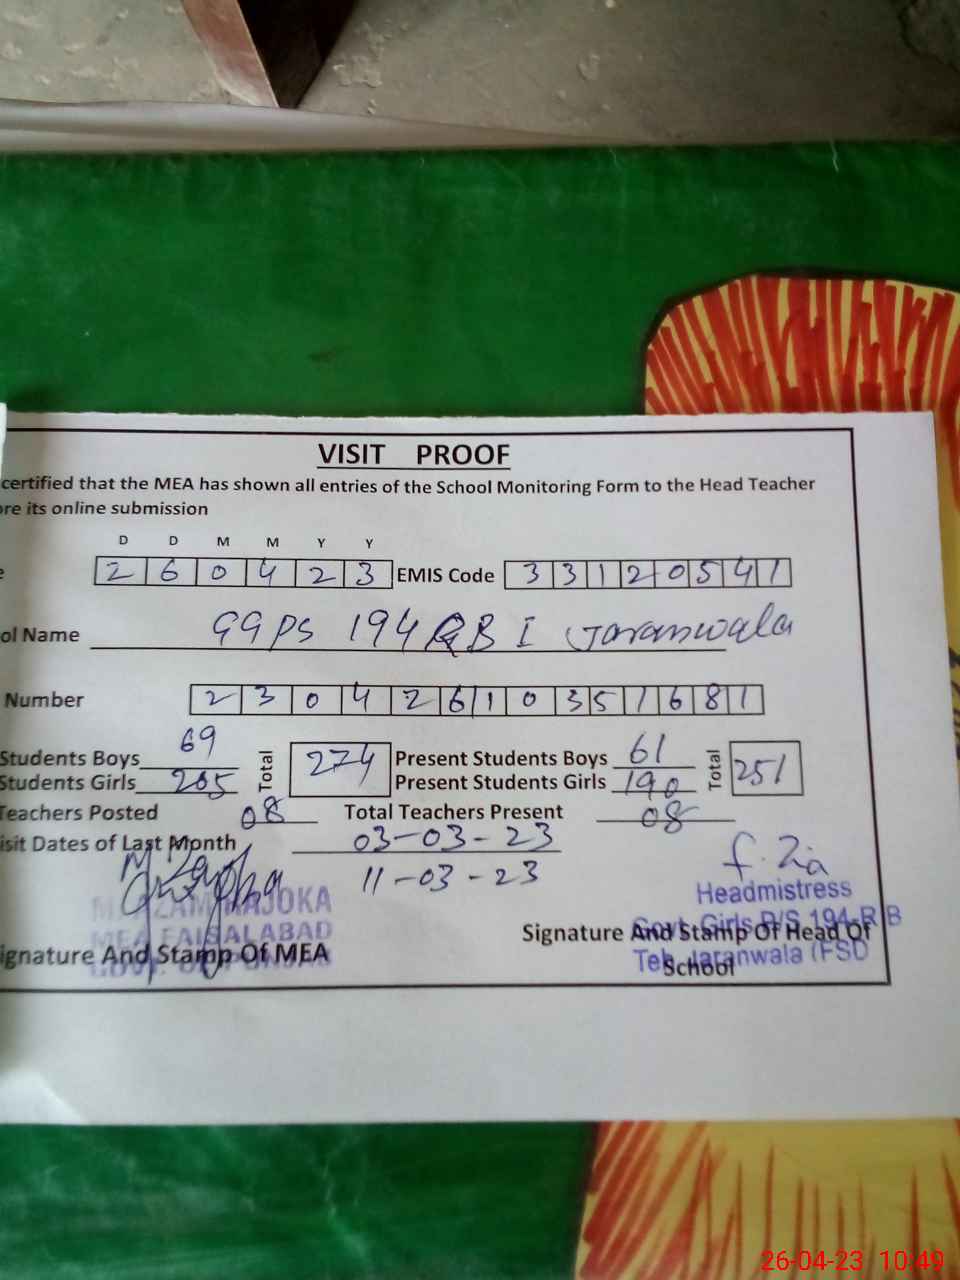 VISIT PROOF
certified that the MEA has shown all entries of the School Monitoring Form to the Head Teacher
re its online submission
D D M M Y Y
2 6 0 4 2 3 EMIS Code 3 3 1 2 0 5 4 1
ol Name GGPS 194 RB I Jaranwala
Number 2 3 0 4 2 6 1 0 3 5 1 6 8 1
Students Boys 69 Total 274 Present Students Boys 61 Total 251
Students Girls 205 Present Students Girls 190
Teachers Posted 08 Total Teachers Present 08
isit Dates of Last Month 03-03-23
11-03-23
f. Zia
Headmistress
RAJOKA
Govt. Girls P/S 194-RB
MEA FAISALABAD
Signature And Stamp Of Head Of
School
ignature And Stamp Of MEA
Teh. Jaranwala (FSD
26-04-23 10:49